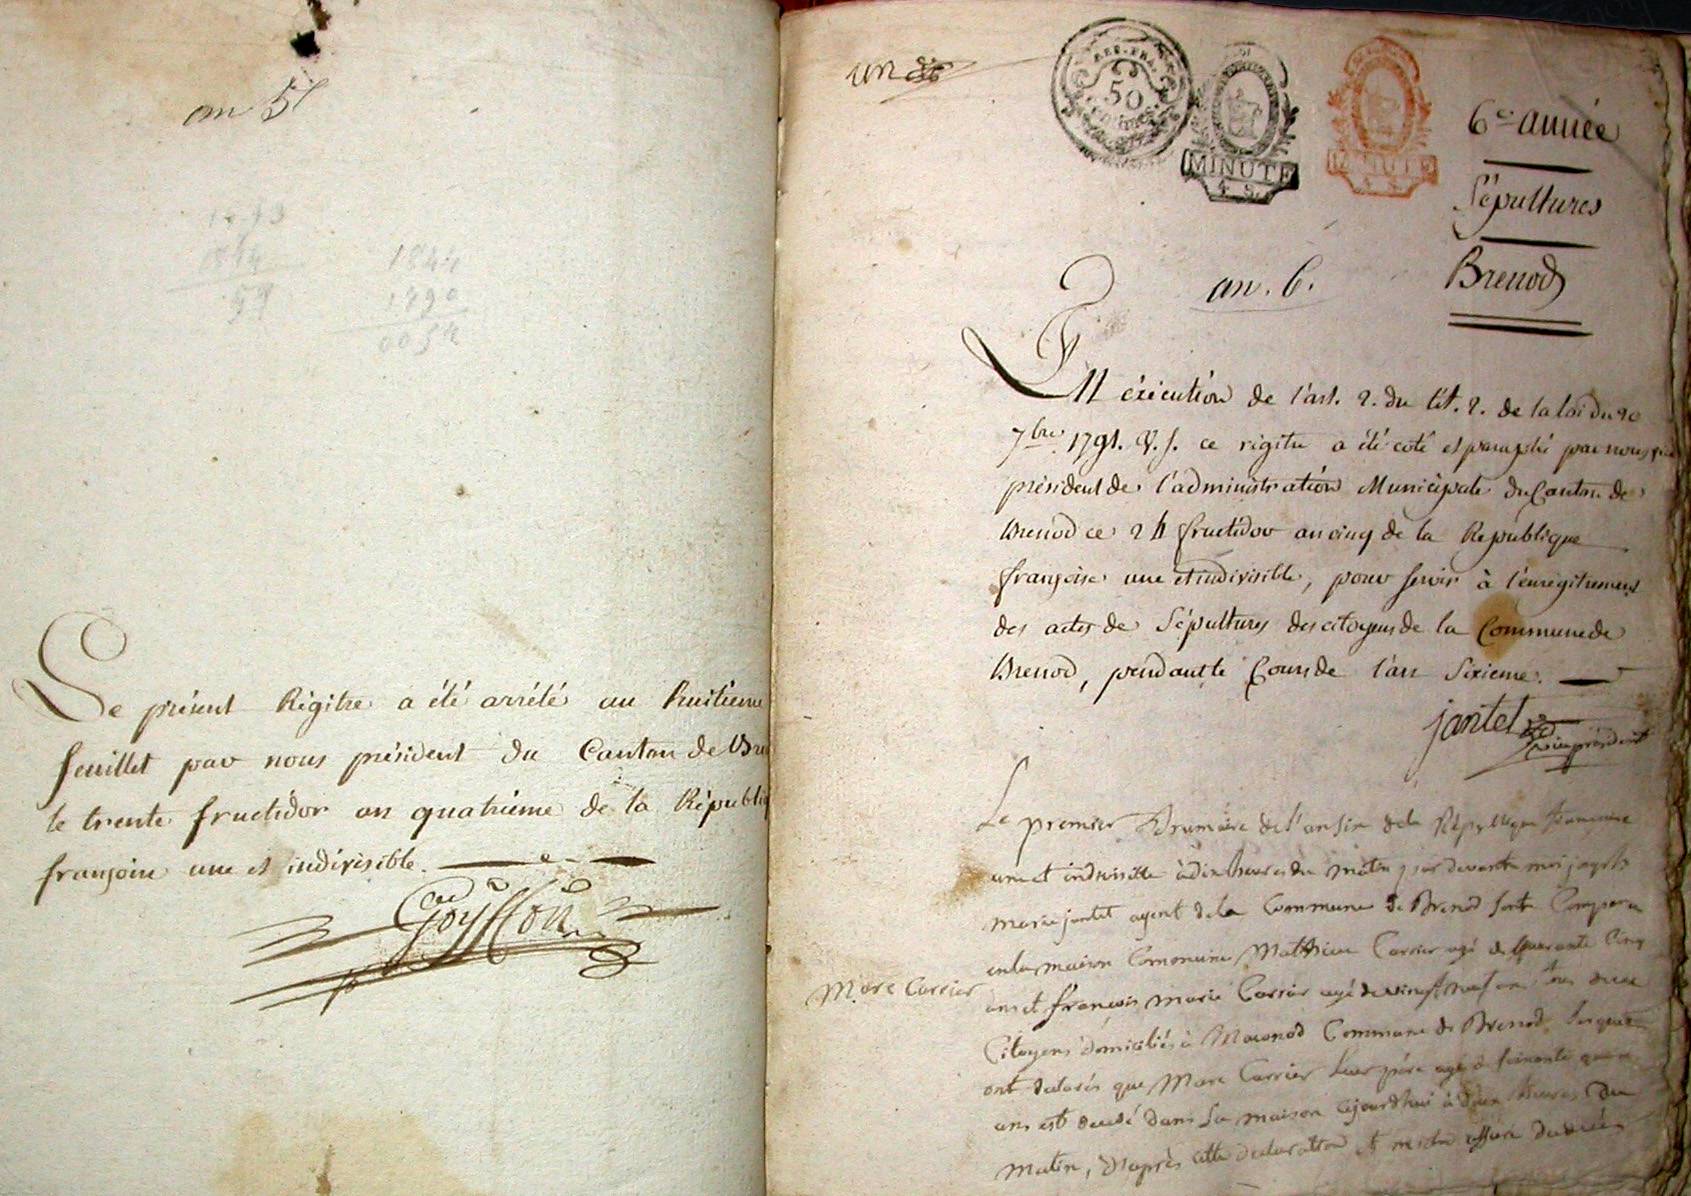 an 5
1793
1844
54
1844
1790
0054
Le présent Régitre a été arrété au huitieme
feuillet par nous président du Canton de Bre
le trente fructidor an quatrième de la Républiq
françoise une et indivisible.
Goyffon
un
REP. FRA.
50
Centimes
MINUTE
4 S.
MINUTE
4 S.
6e année
Sépultures
Brenod
an. 6.
En exécution de l'art. 2. du tit. 2. de la loi du 20
7bre 1791. V.S. ce régitre a été coté et paraphé par nous vice
président de l'administration Municipale du Canton de
Brenod ce 24 fructidor an cinq de la République
françoise une et indivisible, pour servir à l'enregitrement
des actes de Sépultures des citoyens de la Commune de
Brenod, pendant le Cours de l'an Sixieme.
jantet
vice président
Le premier Brumaire de l'an six de la République francaise
une et indivisible à dix heures du matin, par devant moi joseph
marie jantet agent de la Commune de Brenod sont Comparu
en la maison Commune Mathieu Carrier agé de quarante Cinq
Marc Carrier
ans et françois marie Carrier agé de vingt neuf ans tous deux
Citoyens domiciliés à Macconod Commune de Brenod, lesquels
ont declarés que Marc Carrier Leur père agé de soixante
ans est decedé dans Sa maison ajourdhui à deux heures du
matin, d'après cette declaration et m'etre assuré du decès